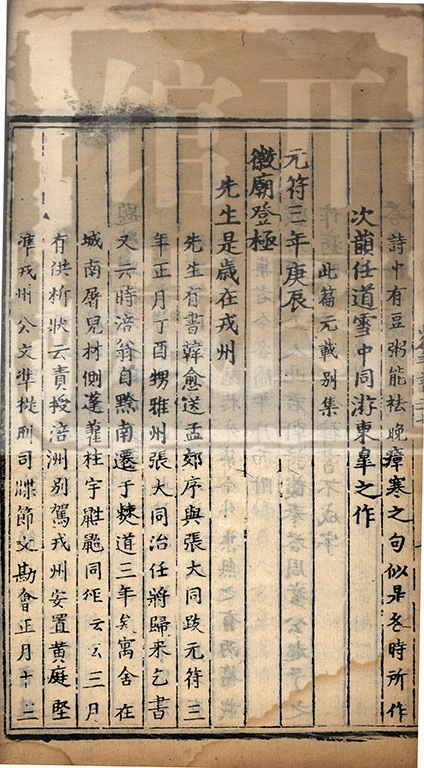 詩中有豆粥能祛晚瘴寒之句似是冬時所作
次韻任道雪中同游東皐之作
此篇元載別集
元符三年庚辰
徽廟登極
先生是歲在戎州
先生有書韓愈送孟郊序與張大同跋元符三
年正月丁酉甥雅州張大同治任將歸來乞書
又云時涪翁自黔南遷于僰道三年矣寓舍在
城南屠兒村側蓬藋柱宇鼪鼯同徑云云三月
有洪析狀云責授涪州別駕戎州安置黄庭堅
準戎州公文準提刑司牒節文勘會正月十三